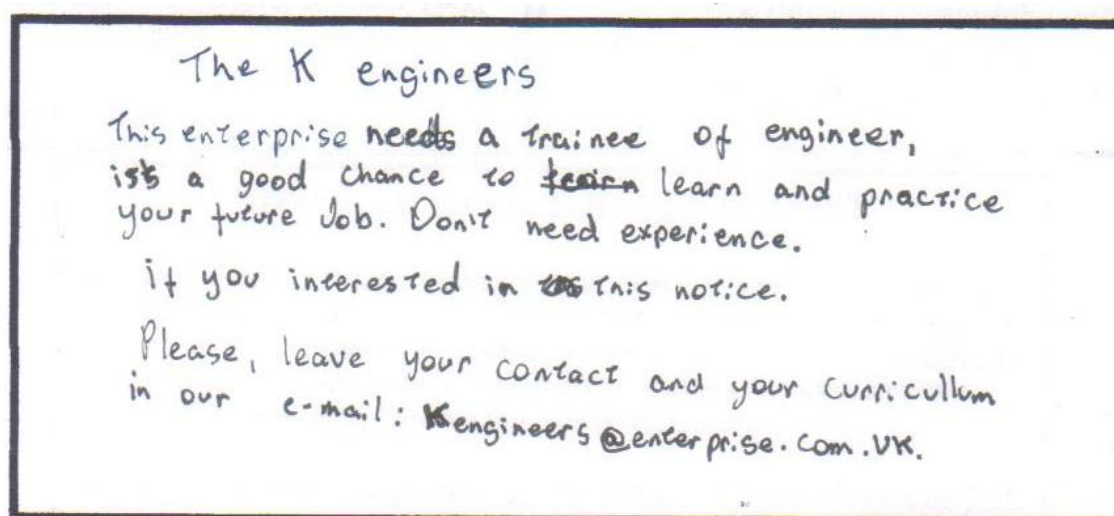 The K engineers
This enterprise needs a trainee of engineer,
is a good chance to learn and practice
your future Job. Don't need experience.
if you interested in this notice.
Please, leave your contact and your curricullum
in our e-mail: Kengineers@enterprise.com.UK.